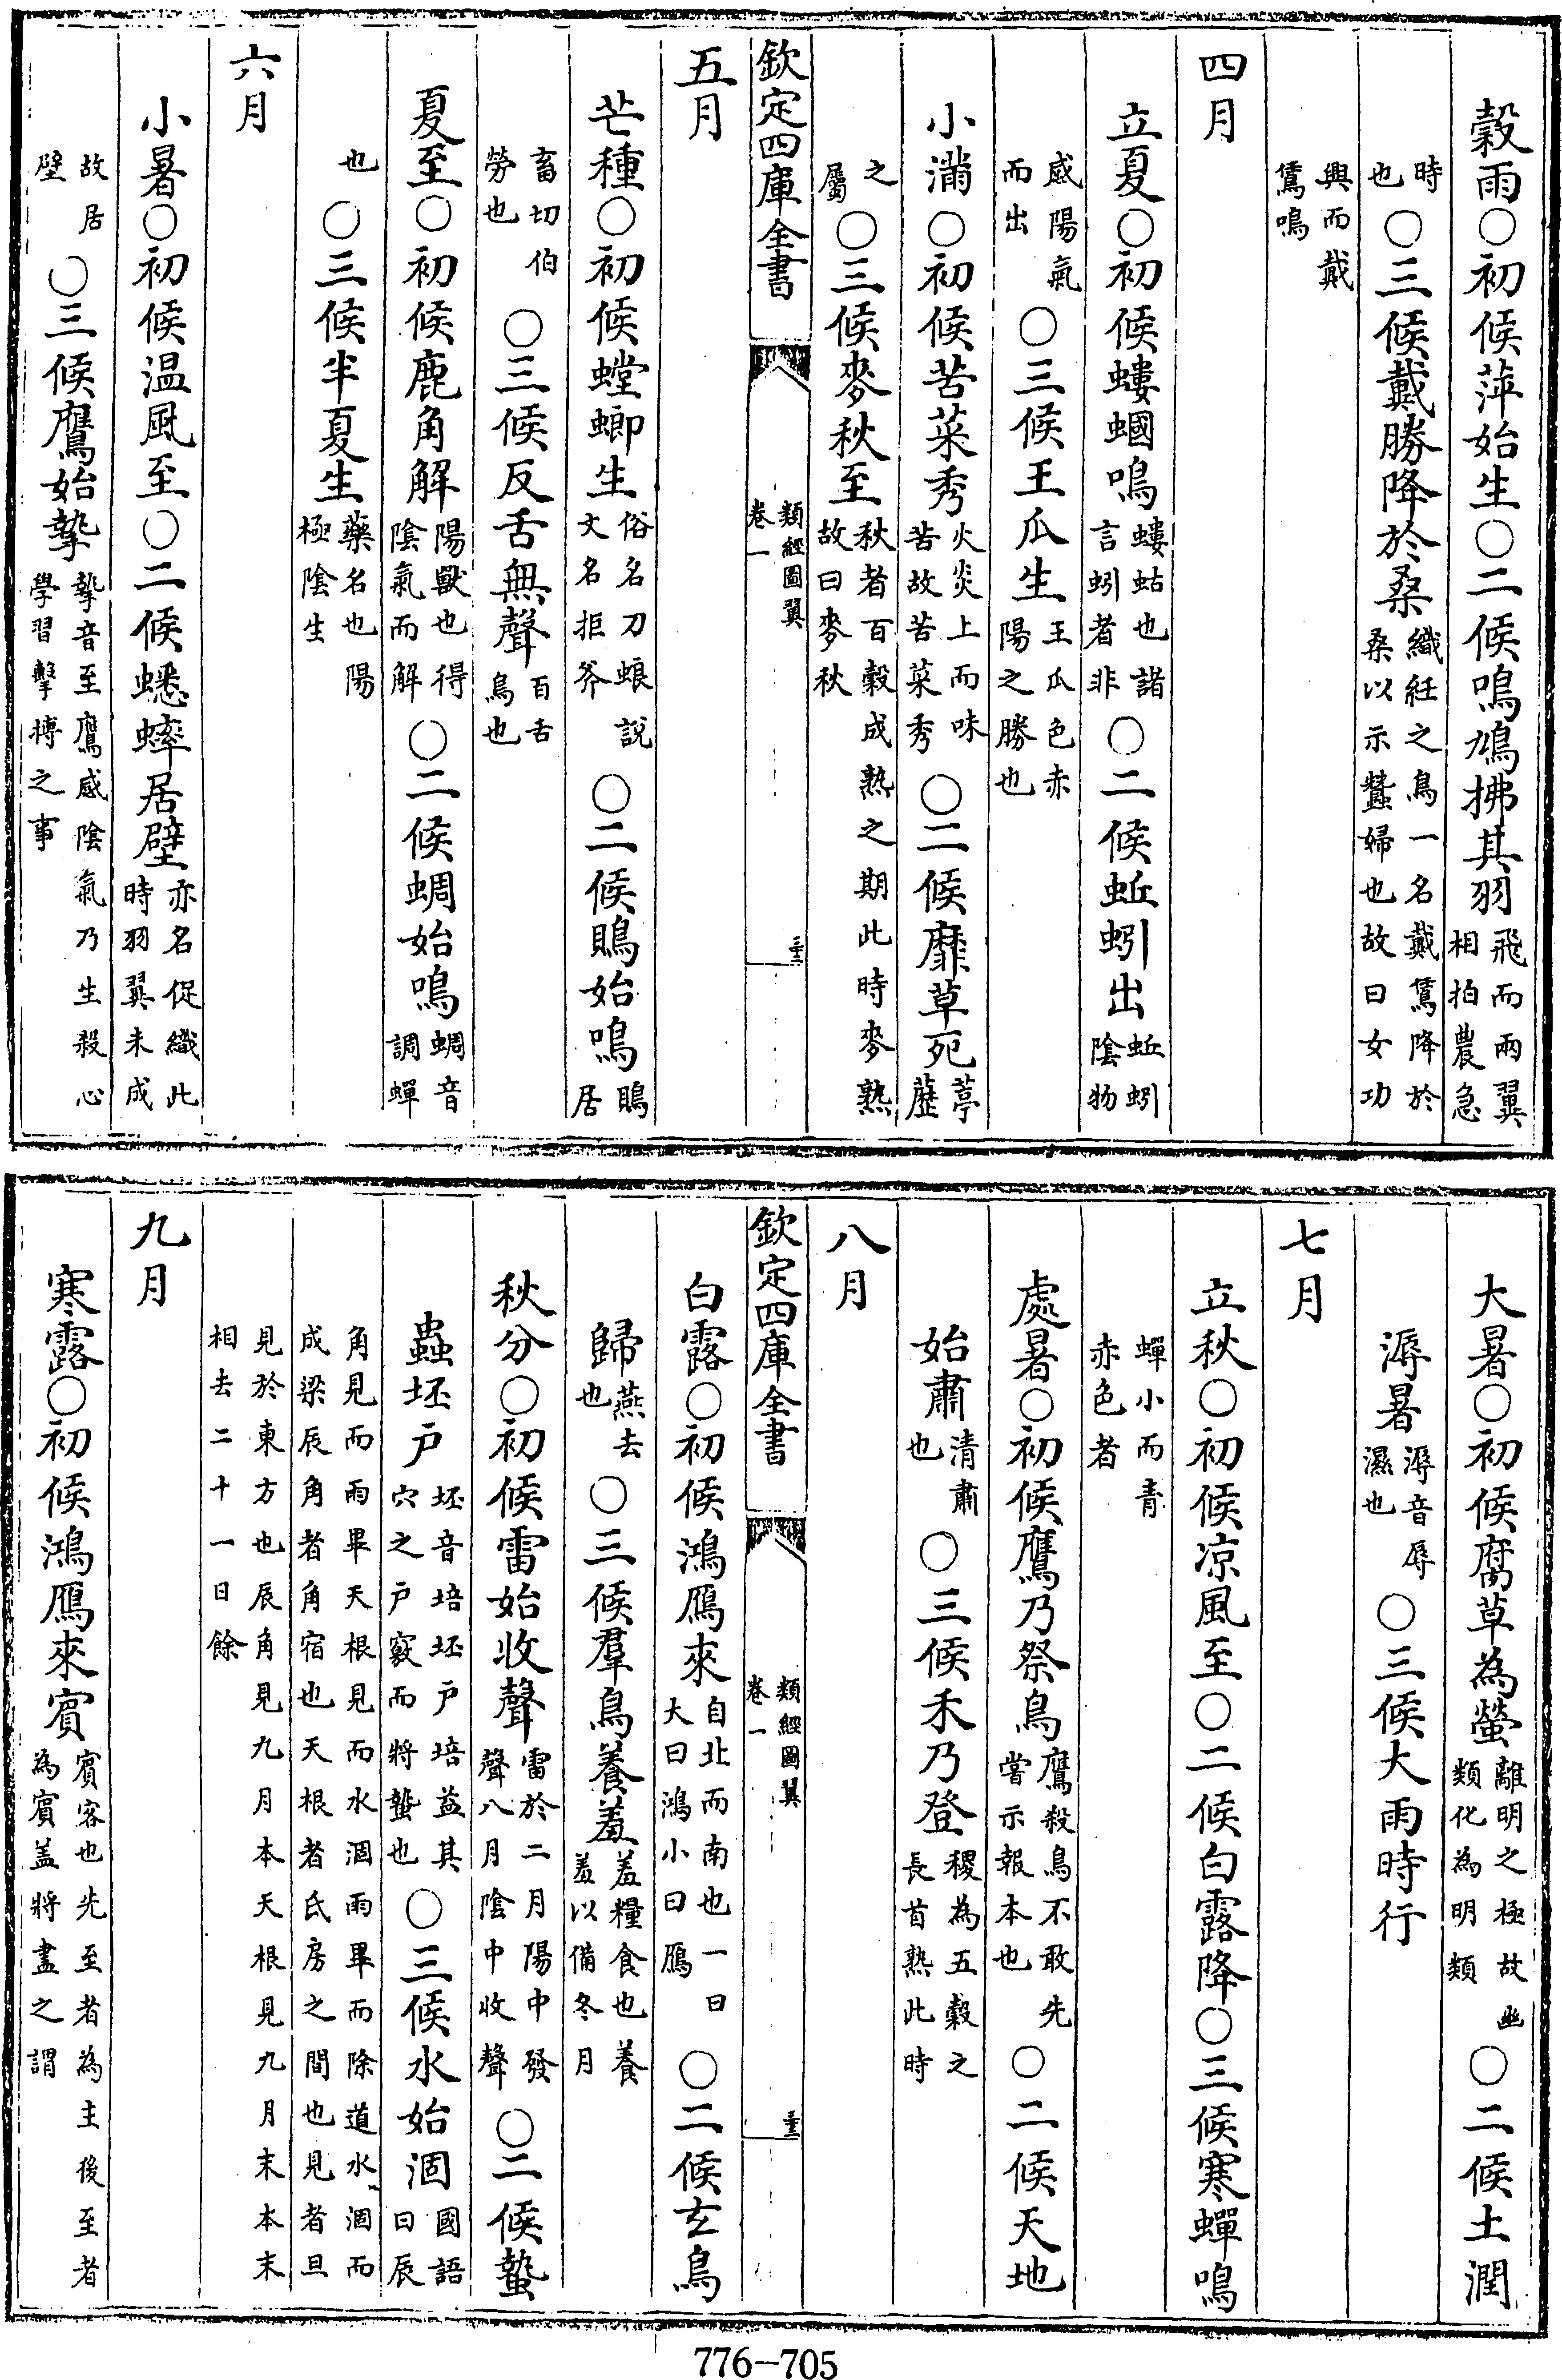 穀雨○初候萍始生○二候鳴鳩拂其羽飛而兩翼相拍農急
時也○三候戴勝降於桑織紝之鳥一名戴鵀降於桑以示蠶婦也故曰女功
興而戴鵀鳴
四月
立夏○初候螻蟈鳴螻蛄也諸言蚓者非○二候蚯蚓出蚯蚓陰物
感陽氣而出○三候王瓜生王瓜色赤陽之勝也
小滿○初候苦菜秀火炎上而味苦故苦菜秀○二候靡草死葶藶
之屬○三候麥秋至秋者百穀成熟之期此時麥熟故曰麥秋
欽定四庫全書 類經圖翼卷一
五月
芒種○初候螳螂生俗名刀螂說文名拒斧○二候鵙始鳴鵙居
畜切伯勞也○三候反舌無聲百舌鳥也
夏至○初候鹿角解陽獸也得陰氣而解○二候蜩始鳴蜩音調蟬
也○三候半夏生藥名也陽極陰生
六月
小暑○初候温風至○二候蟋蟀居壁亦名促織此時羽翼未成
故居壁○三候鷹始摯摯音至鷹感陰氣乃生殺心學習擊搏之事
大暑○初候腐草為螢離明之極故幽類化為明類○二候土潤
溽暑溽音辱濕也○三候大雨時行
七月
立秋○初候凉風至○二候白露降○三候寒蟬鳴
蟬小而青赤色者
處暑○初候鷹乃祭鳥鷹殺鳥不敢先嘗示報本也○二候天地
始肅清肅也○三候禾乃登稷為五穀之長首熟此時
八月
欽定四庫全書 類經圖翼卷一
白露○初候鴻鴈來自北而南也一曰大曰鴻小曰鴈○二候玄鳥
歸燕去也○三候羣鳥養羞羞糧食也養羞以備冬月
秋分○初候雷始收聲雷於二月陽中發聲八月陰中收聲○二候蟄
蟲坯戶坯音培坯戶培益其穴之戶竅而將蟄也○三候水始涸國語曰辰
角見而雨畢天根見而水涸雨畢而除道水涸而成梁辰角者角宿也天根者氐房之間也見者旦
見於東方也辰角見九月本天根見九月末本末相去二十一日餘
九月
寒露○初候鴻鴈來賓賓客也先至者為主後至者為賓盖將盡之謂
776-705